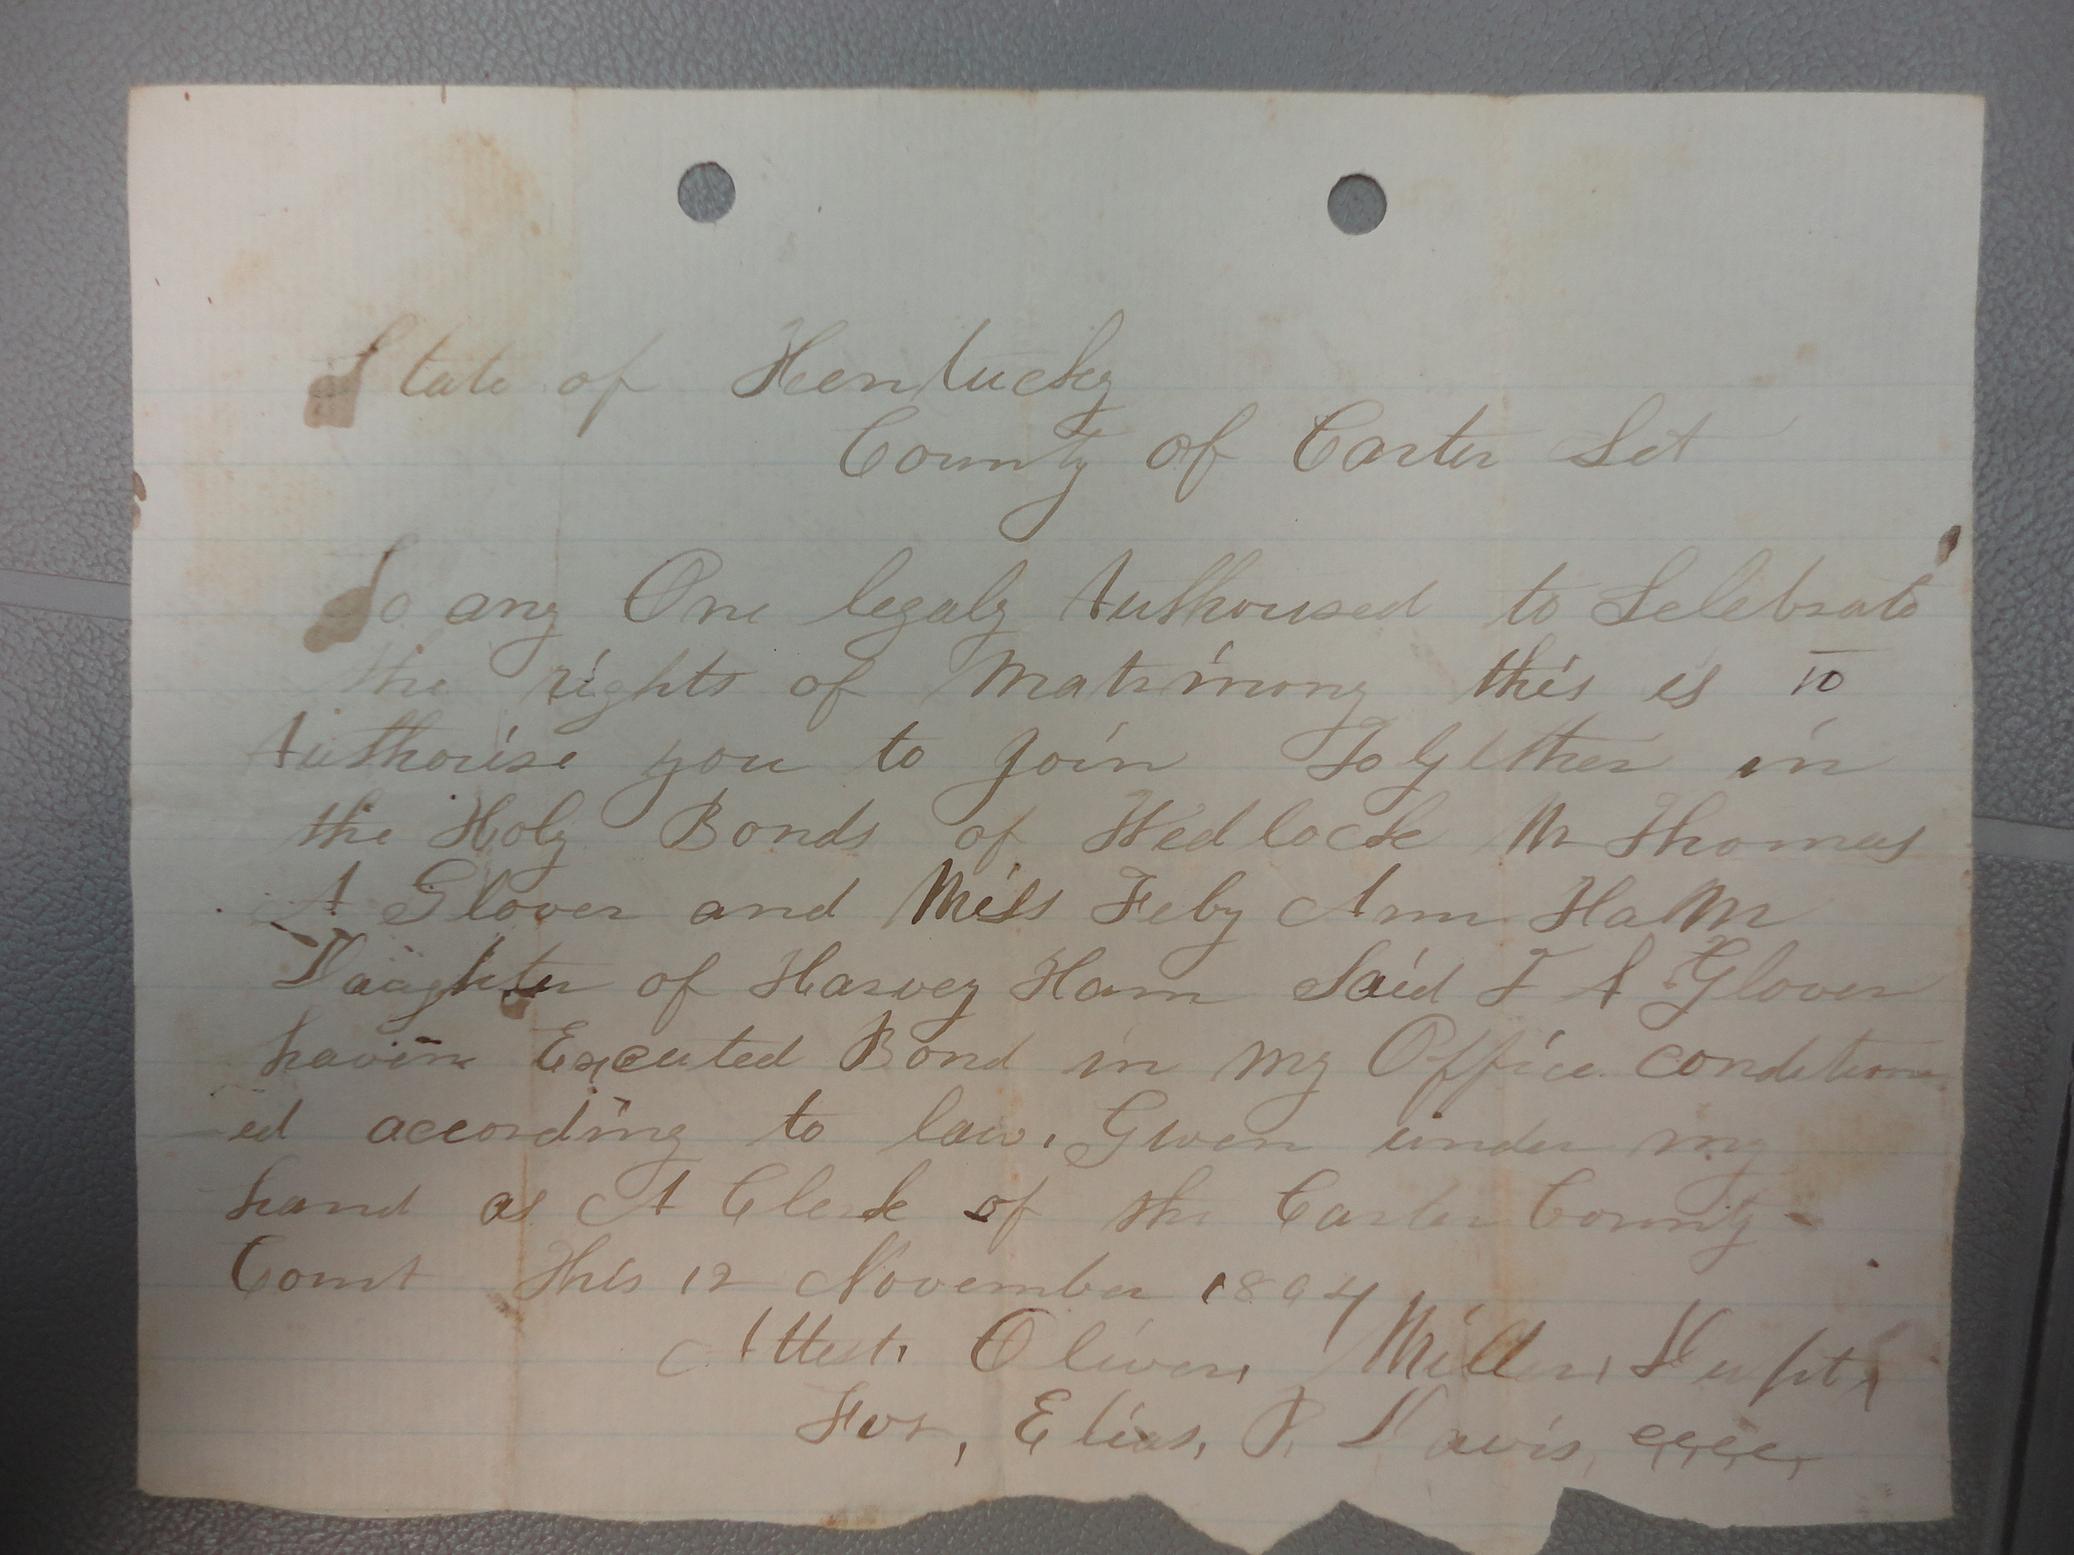 State of Kentucky
County of Carter Sct
To any One legaly Authorised to Selebrate
the rights of Matrimony this is to
Authorise you to join To Gether in
the Holy Bonds of Wedlock Mr Thomas
A Glover and Miss Feby Ann Ham
Daughter of Harvey Ham Said T A Glover
havin Executed Bond in my Office condition
ed according to law. Given under my
hand as A Clerk of the Carter County
Court This 12 November 1894
Attest. Oliver, Miller, Dupt,
For, Elias, P. Davis, c,c,c,c,